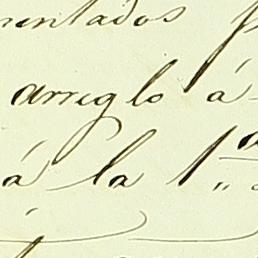 mentados
arreglo á
á la 1.ª